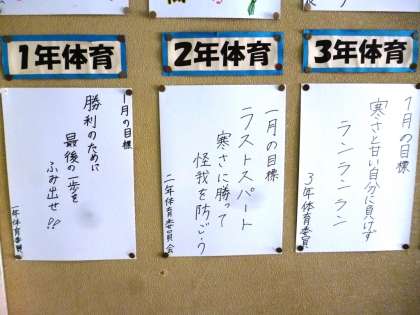 1年体育
1月の目標
勝利のために
最後の一歩を
ふみ出せ!!
一年体育委員
2年体育
一月の目標
ラストスパート
寒さに勝って
怪我を防ごう
二年体育委員会
3年体育
1月の目標
寒さと甘い自分に負けず
ランランラン
3年体育委員